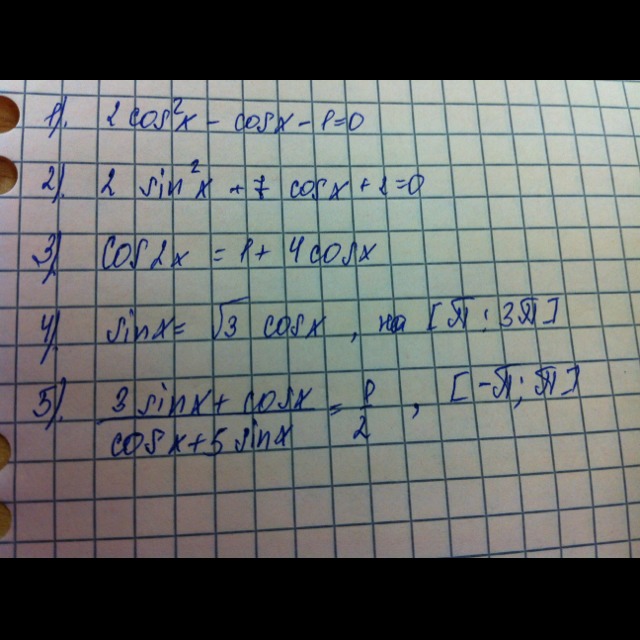 1). 2cos²x - cosx - 1=0
2). 2 sin²x + 7 cosx + 2=0
3) cos2x = 1 + 4cosx
4) sinx = √3 cosx, на [π; 3π]
5). (3 sinx + cosx)/(cosx + 5 sinx) = 1/2, [-π; π]